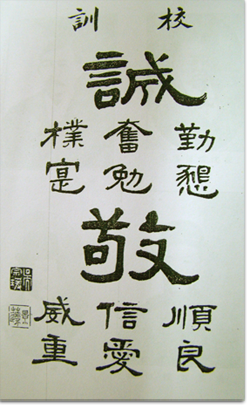 校訓
誠
勤懇
奮勉
樸寔
敬
順良
信愛
威重